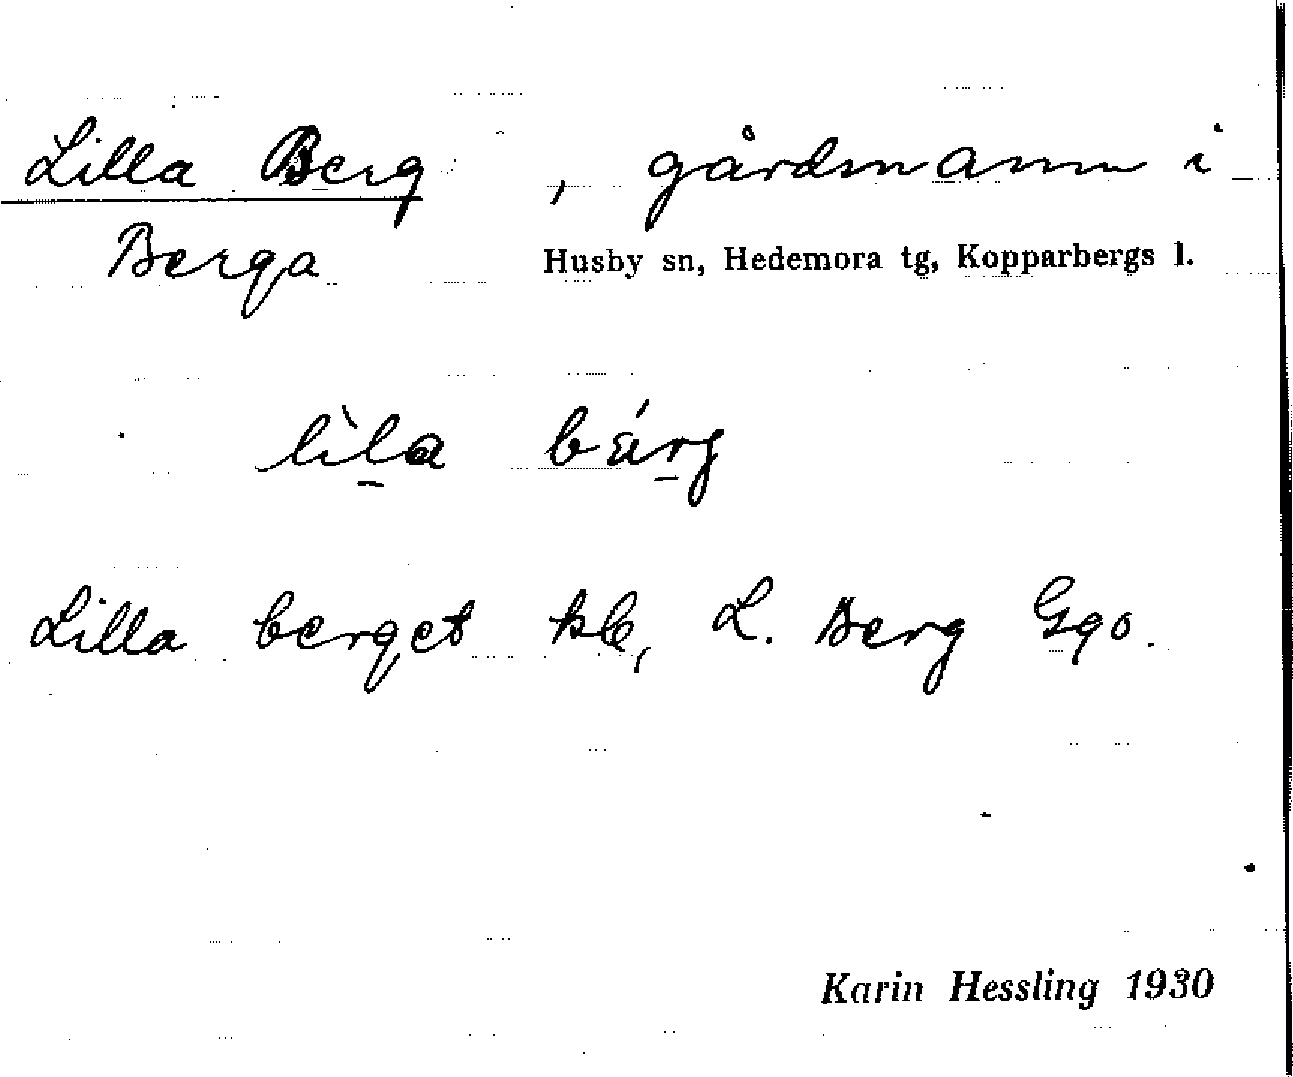 Lilla Berg, gårdsnamn i
Berga
Husby sn, Hedemora tg, Kopparbergs l.
lìla bárg
Lilla berget hk, L. Berg Ggo.
Karin Hessling 1930